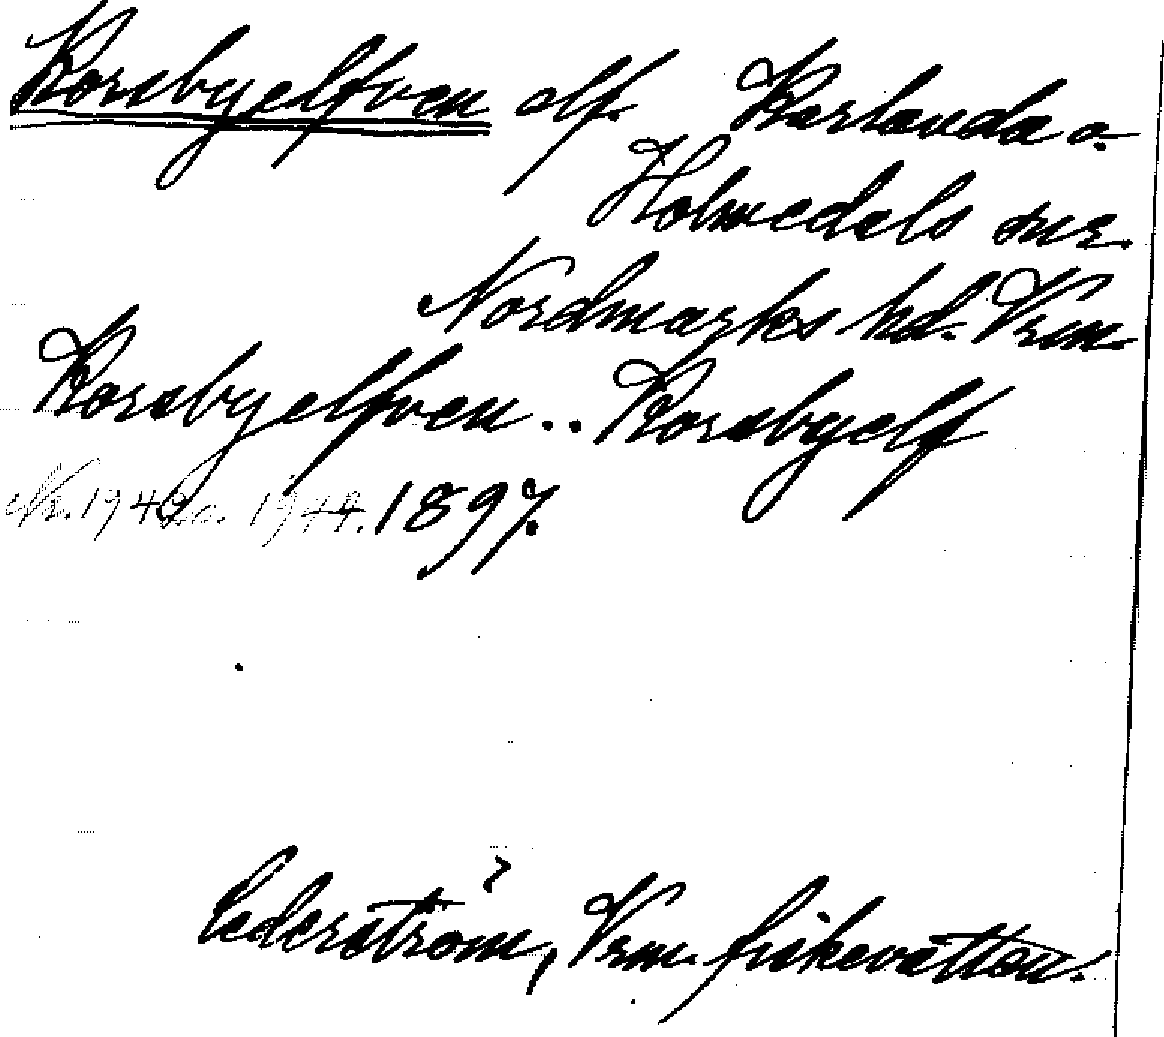 Korsbyelfven elf. Karlanda o.
Holmedals snr.
Nordmarks hd. Vrm.
Korsbyelfven.. Korsbyelf
Nr. 1942 o. 1944. 1897.
Cederström, Vrm. fiskevatten.